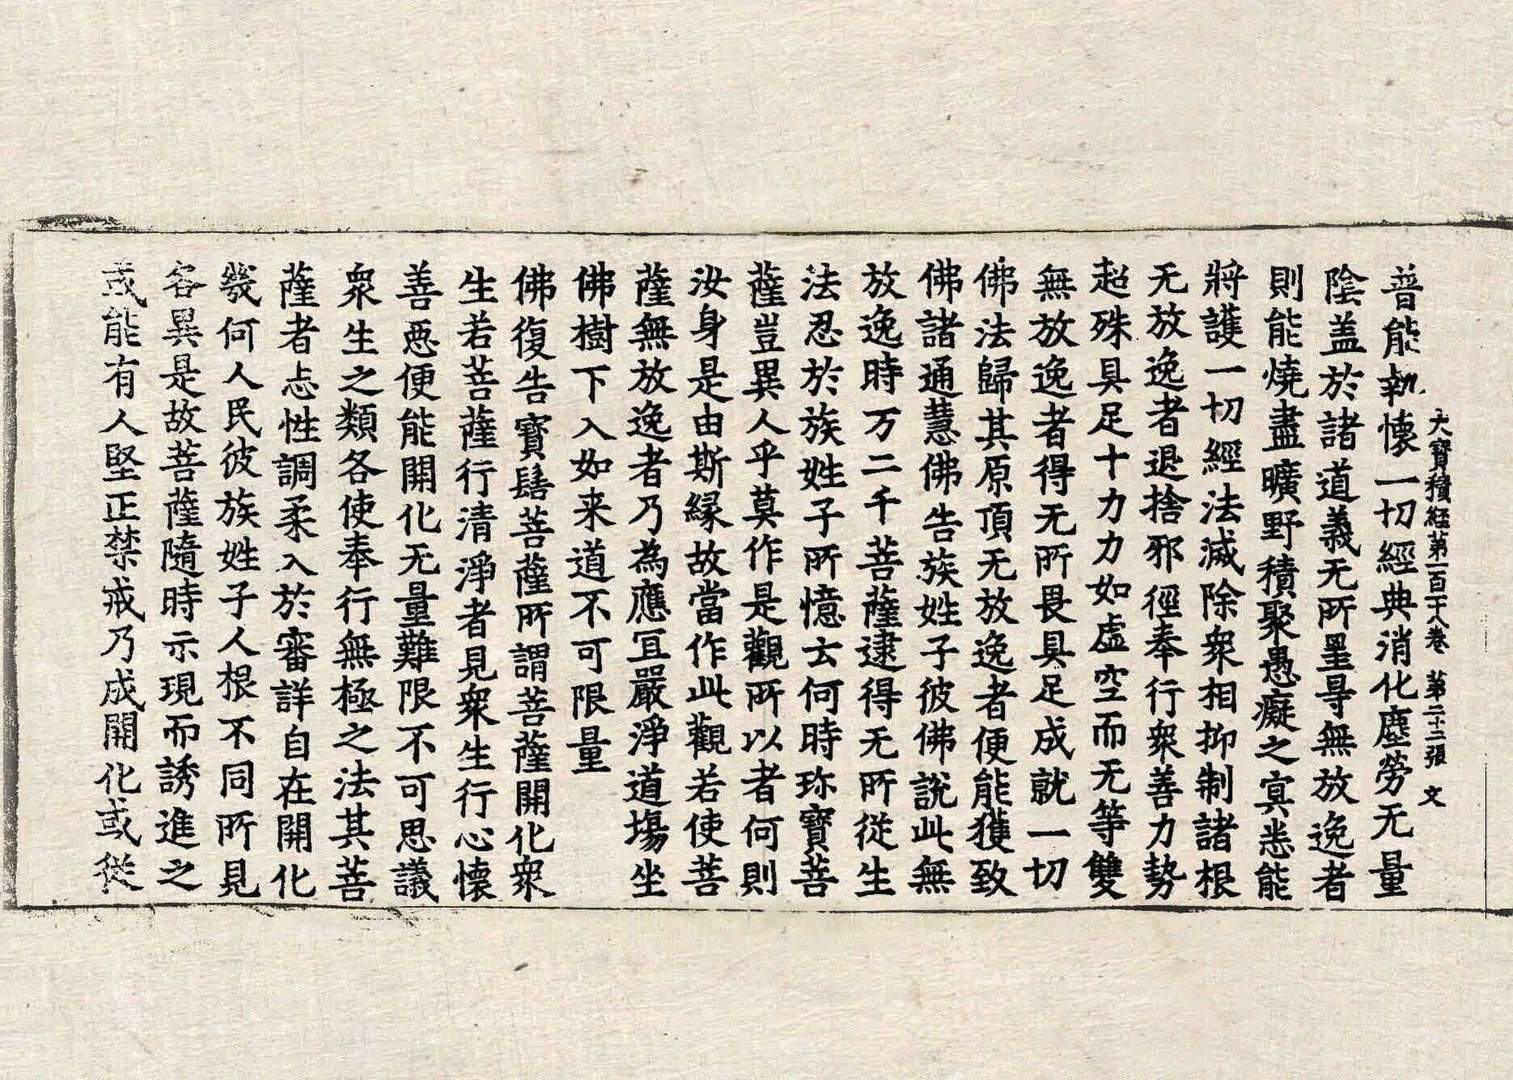 大寶積經第一百十八卷　第二十二張　文
普能執懷一切經典消化塵勞无量
陰盖於諸道義无所罣㝵無放逸者
則能燒盡曠野積聚愚癡之冥悉能
將護一切經法滅除衆相抑制諸根
无放逸者退捨邪徑奉行衆善力勢
超殊具足十力力如虛空而无等雙
無放逸者得无所畏具足成就一切
佛法歸其原頂无放逸者便能獲致
佛諸通慧佛告族姓子彼佛說此無
放逸時万二千菩薩逮得无所從生
法忍於族姓子所憶云何時珎寶菩
薩豈異人乎莫作是觀所以者何則
汝身是由斯緣故當作此觀若使菩
薩無放逸者乃為應冝嚴淨道塲坐
佛樹下入如来道不可限量
佛復告寶髻菩薩所謂菩薩開化衆
生若菩薩行清淨者見衆生行心懷
善惡便能開化无量難限不可思議
衆生之類各使奉行無極之法其菩
薩者志性調柔入於審詳自在開化
幾何人民彼族姓子人根不同所見
各異是故菩薩隨時示現而誘進之
或能有人堅正禁戒乃成開化或從